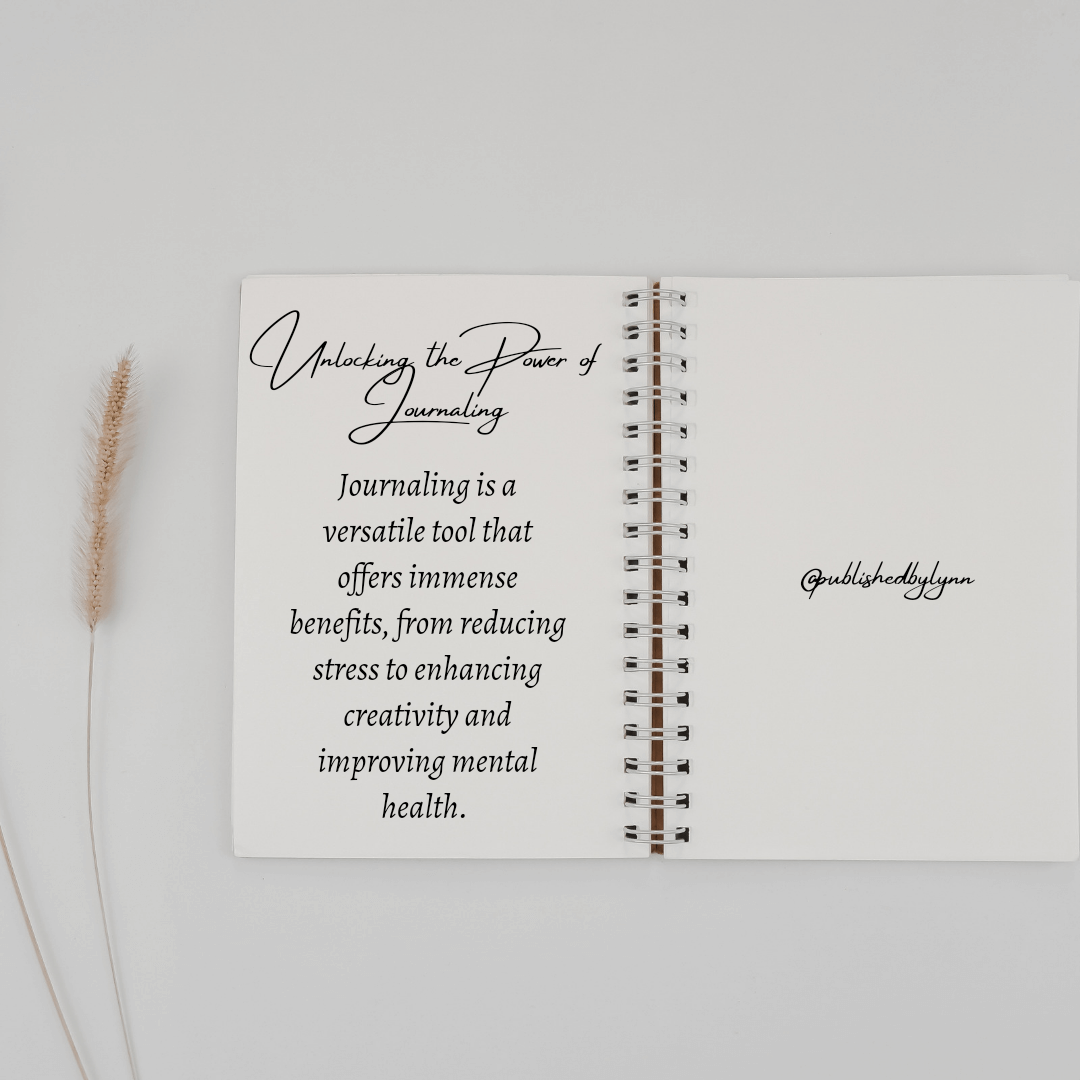 Unlocking the Power of
Journaling
Journaling is a
versatile tool that
offers immense
benefits, from reducing
stress to enhancing
creativity and
improving mental
health.
@publishedbylynn